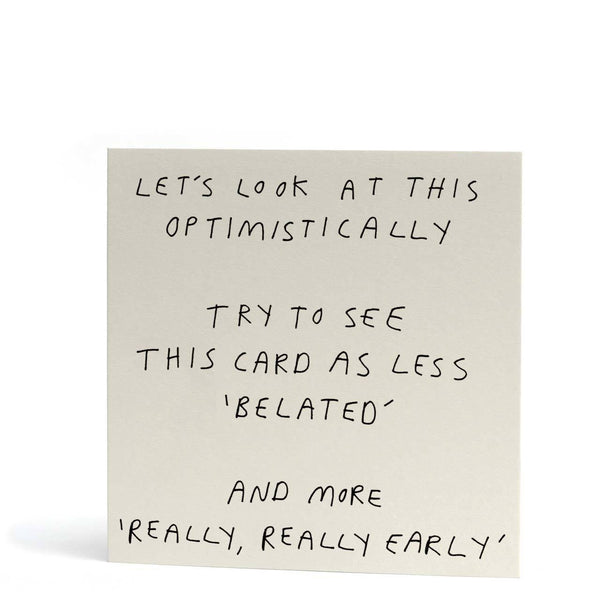 LET'S LOOK AT THIS
OPTIMISTICALLY
TRY TO SEE
THIS CARD AS LESS
'BELATED'
AND MORE
'REALLY, REALLY EARLY'